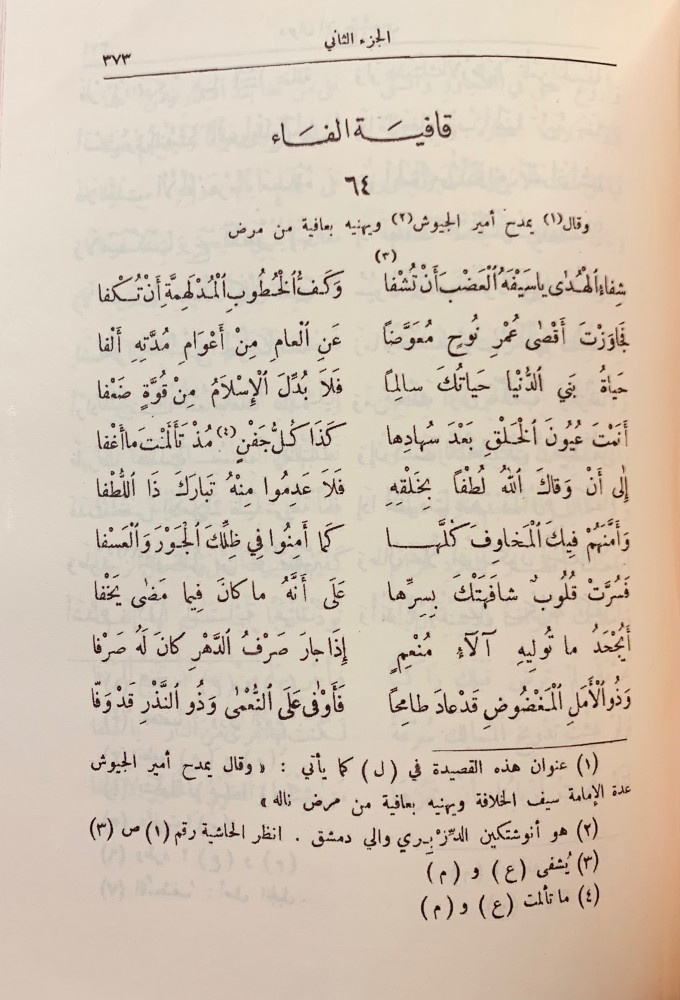 الجزء الثاني
٣٧٣
قافيـة الفـاء
٦٤
وقال(١) يمدح أمير الجيوش(٢) ويهنيه بعافية من مرض
شفاءُ الهُدٰى يا سَيْفَهُ الْعَضْبَ أَنْ تُشْفا (٣) وَكَفُّ الْخُطُوبِ الْمُدْلَهِمَّةِ أَنْ تُكْفا
تَجاوَزْتَ أَقْصٰى عُمْرِ نُوحٍ مُعَوَّضاً عَنِ الْعامِ مِنْ أَعْوَامِ مُدَّتِهِ أَلْفا
حَياةُ بَنِي الدُّنْيا حَياتُكَ سالِماً فَلَا بُدِّلَ الْإِسْلَامُ مِنْ قُوَّةٍ ضَعْفا
أَنَمْتَ عُيُونَ الْخَلْقِ بَعْدَ سُهادِها كَذَا كُلُّ جَفْنٍ(٤) مُذْ تَأَلَّمْتَ ما أَغْفا
إِلى أَنْ وَقاكَ اللهُ لُطْفاً بِخَلْقِهِ فَلَا عَدِمُوا مِنْهُ تَبارَكَ ذَا اللُّطْفا
وَأَمَّنَهُمْ فِيكَ الْمَخاوِفَ كُلَّهـا كَما أَمِنُوا في ظِلِّكَ الْجَوْرَ وَالْعَسْفا
فَسُرَّتْ قُلُوبٌ شافَهَتْكَ بِسِرِّها عَلٰى أَنَّهُ ما كانَ فِيما مَضٰى يَخْفا
أَيُجْحَدُ ما تُولِيهِ آلَاءُ مُنْعِمٍ إِذَا جارَ صَرْفُ الدَّهْرِ كانَ لَهُ صَرْفا
وَذُو الْأَمَلِ الْمَغْضُوضِ قَدْ عادَ طامِحاً فَأَوْفٰى عَلَى النُّعْمٰى وَذُو النَّذْرِ قَدْ وَفّا
(١) عنوان هذه القصيدة في (ل) كما يأتي : « وقال يمدح أمير الجيوش
عدة الإمامة سيف الخلافة ويهنيه بعافية من مرض ناله »
(٢) هو أنوشتكين الدِّزْبِري والي دمشق . انظر الحاشية رقم (١) ص (٣)
(٣) يُشفى (ع) و (م)
(٤) ما تألمت (ع) و (م)